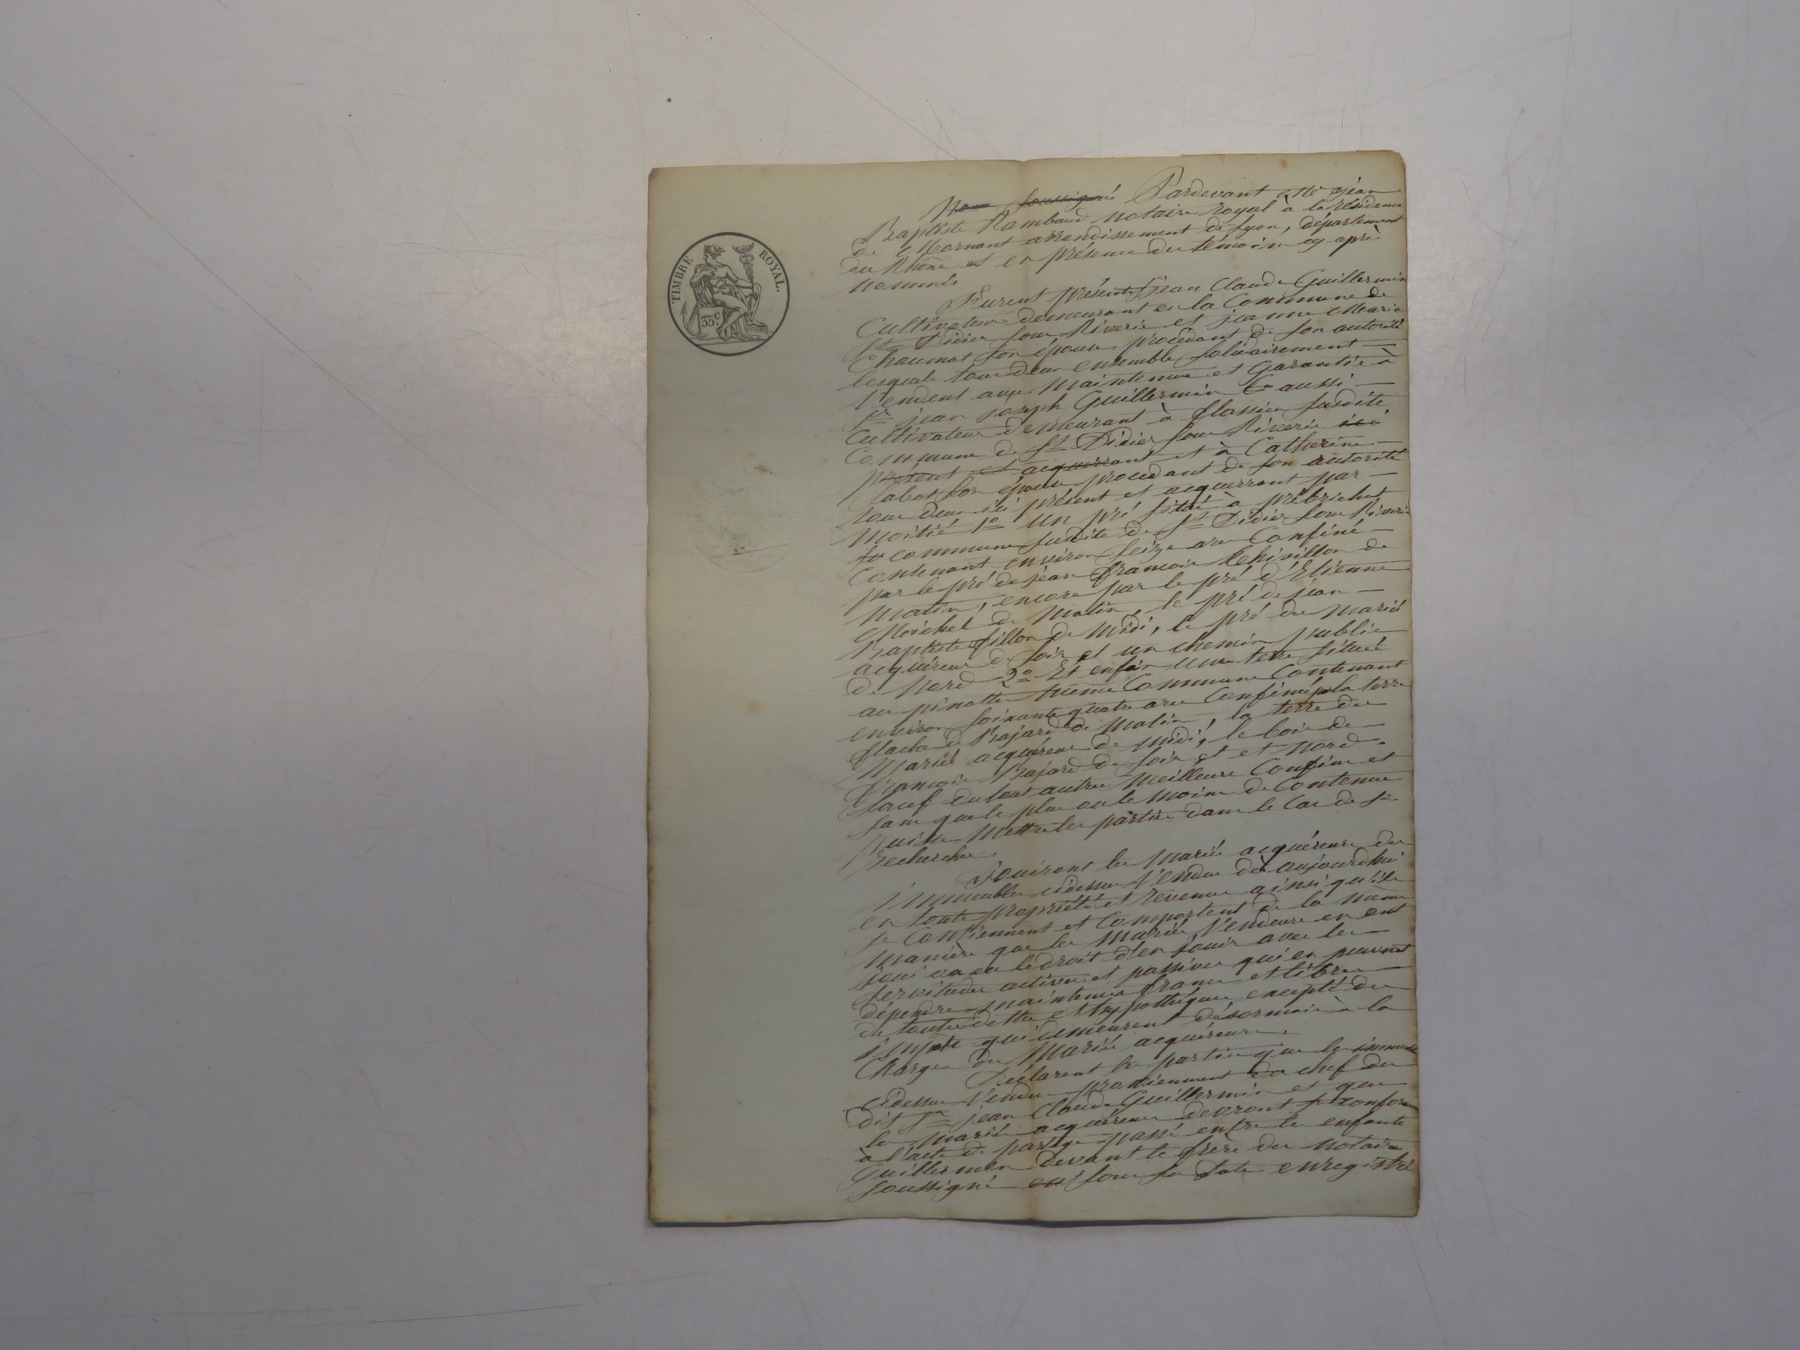 TIMBRE ROYAL.
35 c.
Nous soussigné Pardevant Me jean
Baptiste Rambaud notaire royal à la résidence
de Mornant arrondissement de Lyon, département
du Rhône et en présence des témoins cy après
nommés
Furent présents jean Claude Guillermin
Cultivateur demeurant en la Commune de
St Didier sous Riverie et jeanne Marie
Chaumas son épouse procédant de son autorité
lesquels tous deux ensemble solidairement
Vendent avec Maintenue et Garantie à
Sr jean joseph Guillermin aussi
Cultivateur demeurant à flassieu susdite
Commune de St Didier sous Riverie ici
présent et acquerrant et à Catherine
son épouse procédant de son autorité
tous deux ici présent et acquerrant par
moitié 1o Un pré situé à
commune susdite de St Didier sous Riverie
Contenant environ seize ares Confiné
par le pré de jean françois de
Matin, encore par le pré d'Etienne
de Matin, le pré de jean
Baptiste de Midi, le pré des mariés
acquéreurs de soir et un chemin public
de Nord 2o Et enfin une terre située
au même Commune Contenant
environ soixante quatre ares Confinée par la terre
de Matin, la terre des
Mariés acquéreurs de midi, le bois de
françois de soir et et nord
sauf du tout autres meilleurs Confins et
sans que le plus ou le moins de Contenue
puisse Mettre les parties dans le Cas de se
recherche.
Jouiront les Mariés acquéreurs des
immeubles cidessus Vendus dès aujourdhui
en toute propriété et revenus ainsi qu'ils
se Contiennent et Comportent de la même
Manière que les Mariés Vendeurs en ont
joui ou eu le droit d'en jouir avec les
servitudes actives et passives qui en peuvent
dépendre maintenus francs et libres
de toutes dettes et hypothèques excepté des
impots qui demeurent désormais à la
Charge des Mariés acquéreurs.
Déclarent les parties que les immeubles
cidessus Vendus proviennent du chef du
dit Sr jean Claude Guillermin et que
les mariés acquéreurs devront se conformer
à l'acte de partage passé entre les enfants
Guillermin devant le frère du notaire
soussigné sous sa date enregistré